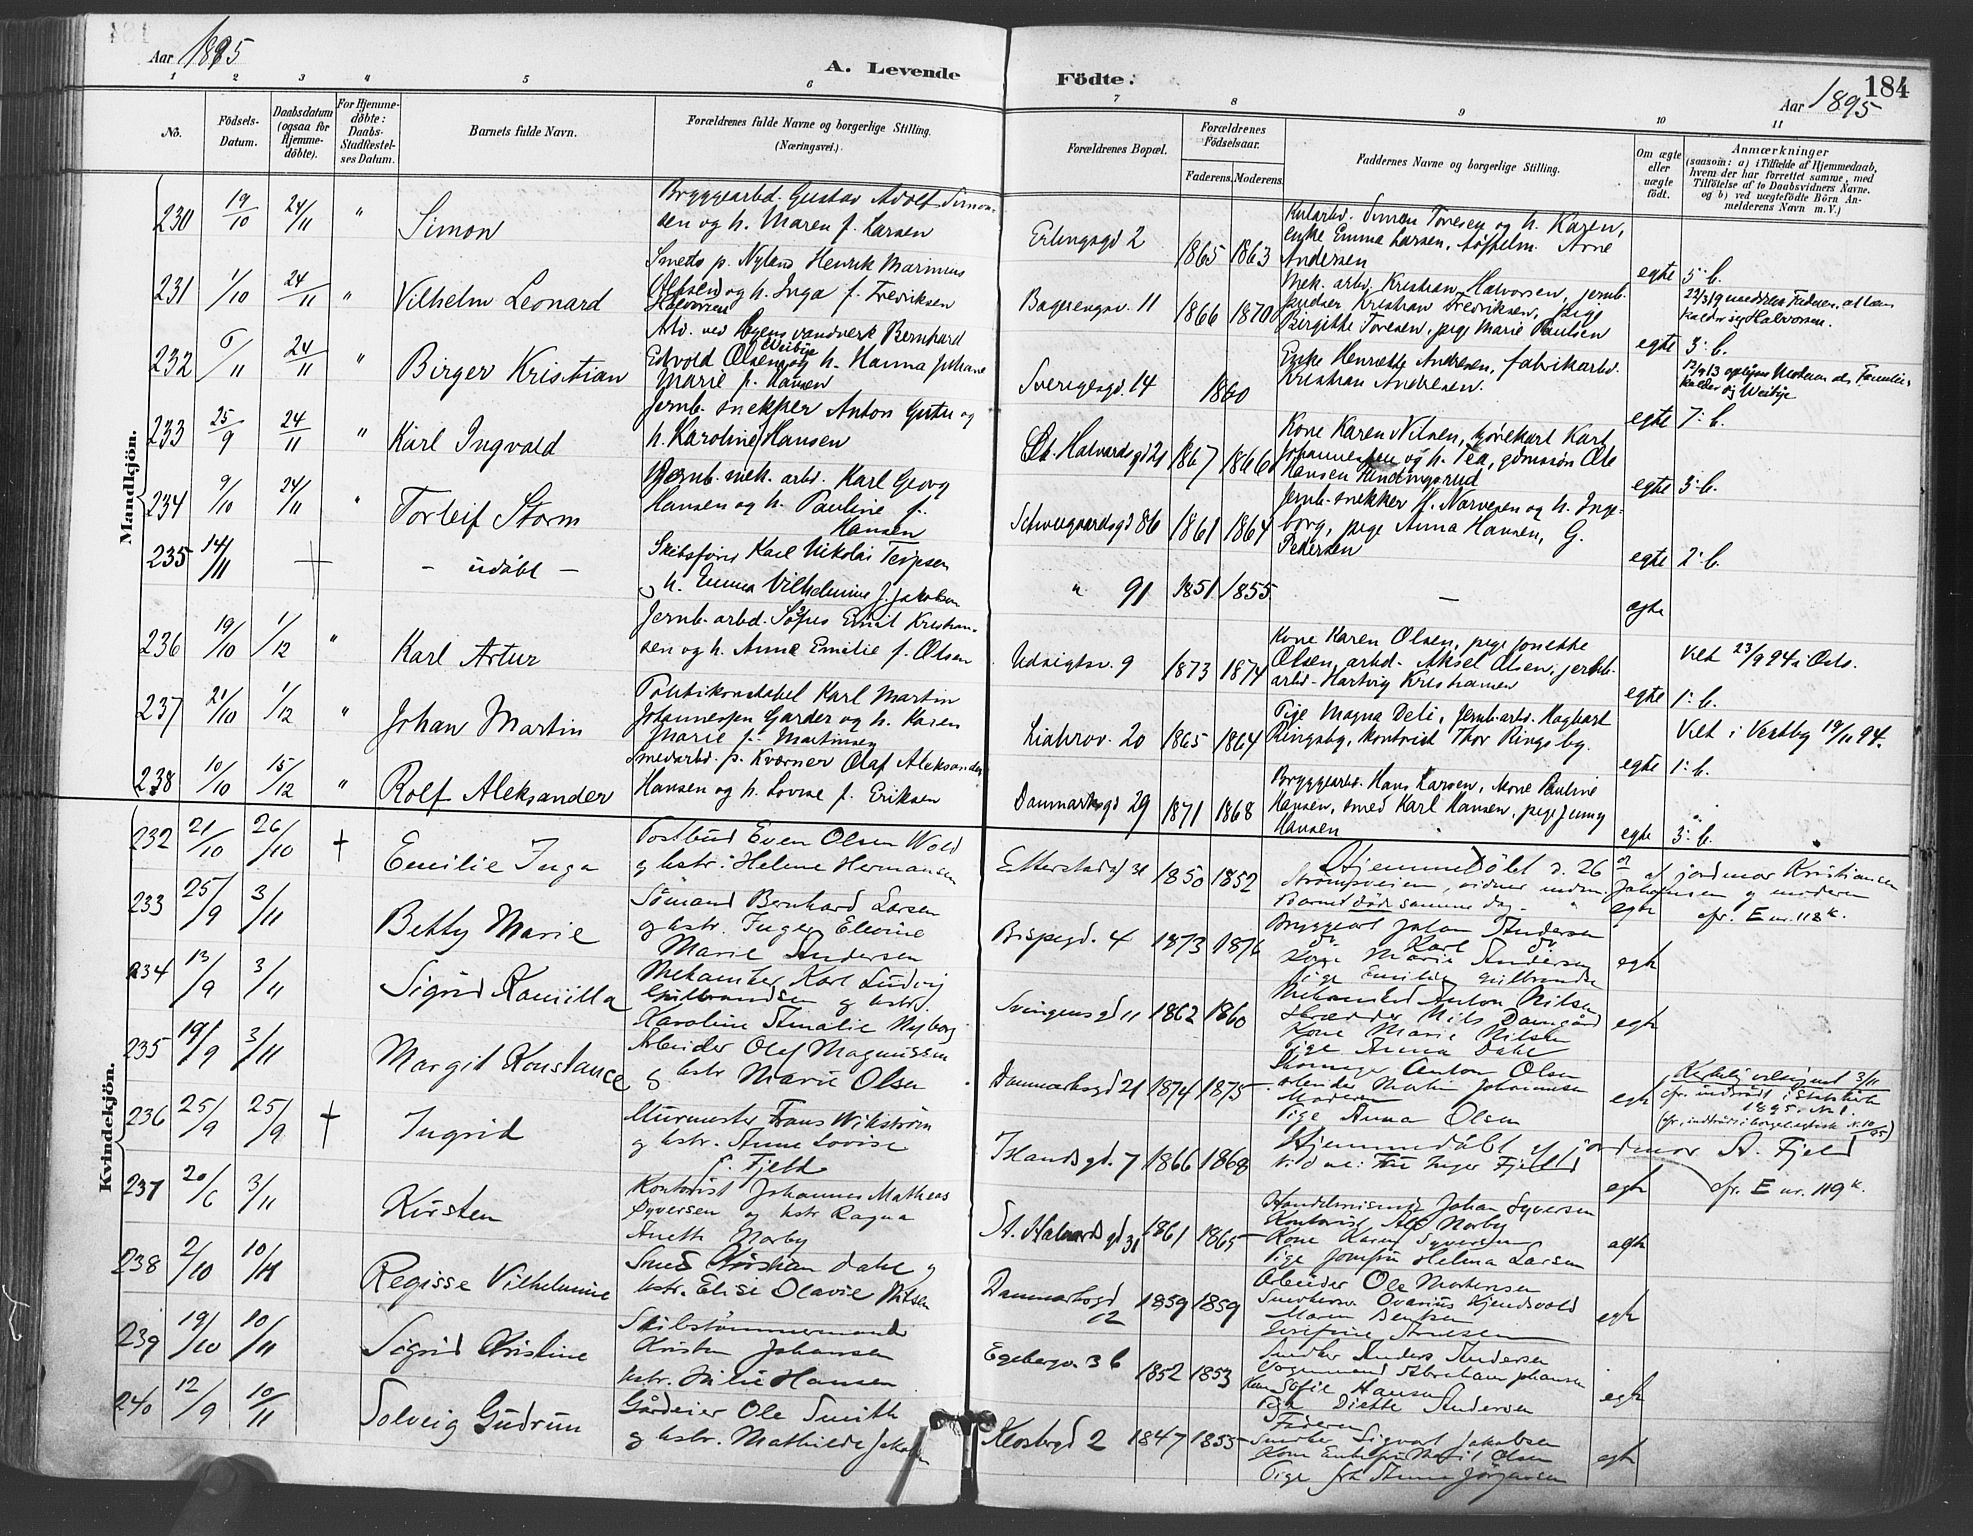 Aar 1895
A. Levende Födte.
184
Aar 1895
1 2 3 4 5 6 7 8 9 10 11
No.
Födsels-Datum.
Daabsdatum (ogsaa for Hjemme-döbte).
For Hjemme-döbte: Daabs-Stadfæstel-ses Datum.
Barnets fulde Navn.
Forældrenes fulde Navne og borgerlige Stilling.
(Næringsvei.)
Forældrenes Bopæl.
Forældrenes Födselsaar.
Faderens. Moderens.
Faddernes Navne og borgerlige Stilling.
Om ægte eller uægte födt.
Anmærkninger
(saasom: a) i Tilfælde af Hjemmedaab,
hvem der har forrettet samme, med
Tilföielse af to Daabsvidners Navne,
og b) ved uægtefödte Börn An-
melderens Navn m. V.)
Mandkjön.
230 19/10 24/11 " Simon
Bryggearbd. Gustav Adolf Simon-
sen og h. Maren f. Larsen
Erlingsgd 2 1865 1863
Simon Toresen og h. Karen,
enke Emma Larsen, Arne
Andersen
egte 5. b.
231 1/10 24/11 " Vilhelm Leonard
Smed p. Nyland Henrik Marinius
Olsen og h. Inga f. Fredriksen
Halvorsen
Bagerengsv. 11 1866 1870
Mek. arbd. Kristian Halvorsen, jernb.
pudser Kristian Fredriksen, pige
Birgitte Toresen, pige Marie Paulsen
egte 3. b.
22/3 19 meddeler Faderen, at han
kalder sig Halvorsen.
232 6/11 24/11 " Birger Kristian
Arb. ved Byens vandverk Bernhard
Edvold Olsen og h. Hanna Johane
Weibye
Marie f. Hansen
Sverigesgd. 14 1860
Enke Henriette Andresen, fabrikarbd.
Kristian Andresen.
egte 7. b.
12/9 13 oplyser Moderen at Familien
kalder sig Weibye
233 25/9 24/11 " Karl Ingvald
Jernb. snekker Anton Gustu og
h. Karoline Hansen
St. Halvardsgd 21 1867 1866
Kone Karen Nilsen, kjørekarl Karl
Johannessen og h. Tea, gdmssøn Ole
Hansen
egte 3. b.
234 9/10 24/11 " Torleif Storm
Jernb. mek. arbd. Karl Georg
Hansen og h. Pauline f.
Hansen
Schweigaardsgd 86 1861 1864
Jernb. snekker H. Narvesen og h. Inge-
borg, pige Anna Hansen, G.
Pedersen
egte 2. b.
235 14/11 + - udöbt -
Skibsfører Karl Nikolai Terjesen
og h. Emma Vilhelmine f. Jakobsen
" 91 1851 1855 —
egte
236 19/10 1/12 " Karl Artur
Jernb. arbd. Sofus Emil Kristian-
sen og h. Anna Emilie f. Olsen
Udsigtsv. 9 1873 1874
Kone Karen Olsen, pige Jonette
Olsen, arbd. Aksel Olsen, jernb.
arbd. Hartvig Kristiansen
egte 1. b.
Viet 23/9 94 i Oslo.
237 21/10 1/12 " Johan Martin
Politikonstabel Karl Martin
Johannessen Garder og h. Karen
Marie f. Martinsen
Liabrov. 20 1865 1864
Pige Magna Deli, Jernb. arbd. Hagbart
Ringsby, kontorist Thor Ringsby.
egte 1. b.
Viet i Vestby 19/11 94.
238 10/10 15/12 " Rolf Aleksander
Smedarbd. p. Kværner Olaf Aleksander
Hansen og h. Lovise f. Eriksen
Danmarksgd 29 1871 1868
Bryggearbd. Hans Larsen, kone Pauline
Hansen, smed Karl Hansen, pige Jenny
Hansen
egte 3. b.
Kvindekjön.
232 21/10 26/10 + Emilie Inga
Postbud Even Olsen Wold
og hstr. Helene Hermansen
Etterstadgd 31 1850 1852
Hjemmedöbt d. 26 af jordmor Kristiansen
Strömsveien, vidner Johannesen og moderen
Barnet døde samme dag.
egte cfr. E nr. 118 k.
233 25/9 3/11 Betty Marie
Sömand Bernhard Larsen
og hstr. Inger Elevine
Marie Andersen
Bispegd. 4 1873 1876
Johan Andersen
do Karl do
Kone Marie Andersen
Pige Emilie Gulbrandsen
egte
234 13/9 3/11 Sigrid Kamilla
Mekaniker Karl Ludvig
Gulbrandsen og hstr.
Karoline Amalie Nyborg
Svingensgd 11 1862 1860
Mekaniker Anton Nilsen
Skrædder Nils Damgård
Kone Marie Nilsen
Pige Anna Dahl
egte
235 19/9 3/11 Margit Konstance
Arbeider Olaf Magnussen
og hstr Marie Olsen
Danmarksgd 21 1874 1875
Anton Olsen
Arbeider Martin Johannesen
Moderen
Pige Anna Olsen
egte
236 25/9 25/9 + Ingrid
Murmester Frans Wikström
og hstr. Anne Lovise
f. Fjeld
Tklandsgd. 7 1866 1868
Hjemmedöbt af jordmor A. Fjeld
Vidne: Inger Fjeld
egte cfr. E nr. 119 k.
Kirkelig velsignet 3/11
cfr. indförsel i
1895. No 1.
237 20/6 3/11 Kirsten
Kontorist Johannes Matheas
Syversen og hstr Ragna
Anette Norby
St. Halvardsgd 31 1861 1865
Handelsreisende Johan Syversen
Kontorist Alf Norby
Kone Karen Syversen
Pige Josefine Helma Larsen
egte
238 2/10 10/11 Regisse Vilhelmine
Smed Kristian Dahl og
hstr. Elise Olavie Nilsen
Danmarksgd 12 1859 1859
Arbeider Ole Mortensen
Ovarius Kjendsvold
Maren Bentsen
Josefine
egte
239 19/10 10/11 Sigrid Kristine
Skibstömmermand
Kristen Johansen
hstr. Julie Hansen
Egebergv. 3 b 1852 1853
Snedker Anders Andersen
Vognmand Abraham Johansen
Kone Sofie Hansen
Pige Diette Andersen
egte
240 12/9 10/11 Solveig Gudrun
Gårdeier Ole Smith
og hstr. Mathilde Jakobsen
Klostergd 2 1847 1855
Faderen
Snedker Sigvart Jakobsen
Kone Olsen
Pige frk Anna Jörgensen
egte